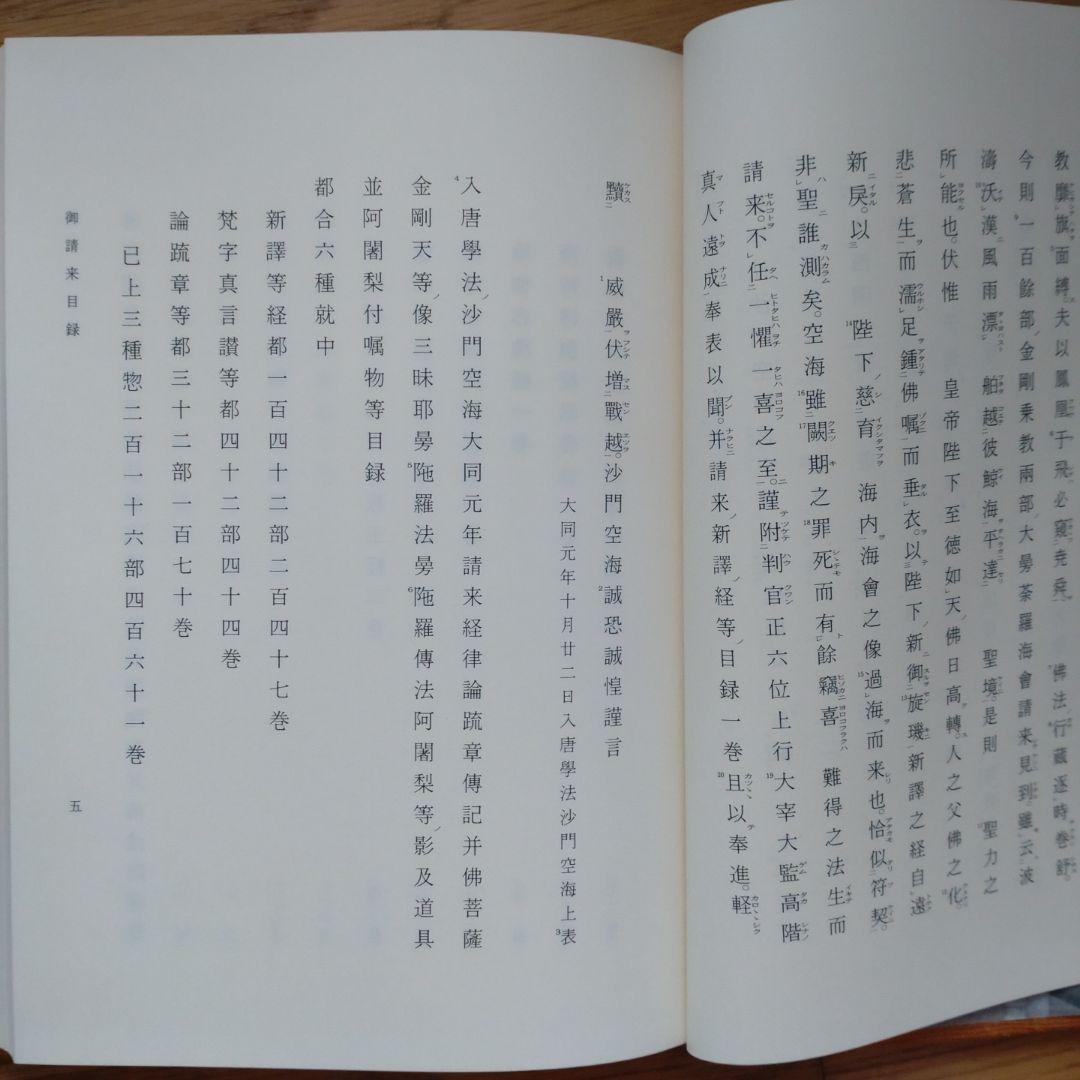 教靡旗面縛。夫以鳳凰于飛必窺堯舜。佛法行藏逐時卷舒。
今則一百餘部金剛乘教兩部大曼荼羅海會請来見到。雖云波
濤沃漢風雨漂舶越彼鯨海平達聖境。是則聖力之
所能也。伏惟皇帝陛下至徳如天佛日高轉。人之父佛之化。
悲蒼生而濡足鍾佛嘱而垂衣。以陛下新御旋璣新譯之経自遠
新戻。以陛下慈育海内海會之像過海而来也。恰似符契。
非聖誰測矣。空海雖闕期之罪死而有餘竊喜難得之法生而
請来。不任一懼一喜之至。謹附判官正六位上行大宰大監高階
真人遠成奉表以聞。并請来新譯経等目録一巻且以奉進。軽
黷威嚴伏増戰越。沙門空海誠恐誠惶謹言
大同元年十月廿二日入唐學法沙門空海上表
入唐學法沙門空海大同元年請来経律論䟽章傳記并佛菩薩
金剛天等像三昧耶曼陁羅法曼陁羅傳法阿闍梨等影及道具
並阿闍梨付嘱物等目録
都合六種就中
新譯等経都一百四十二部二百四十七巻
梵字真言讃等都四十二部四十四巻
論䟽章等都三十二部一百七十巻
已上三種惣二百一十六部四百六十一巻
御請来目録
五